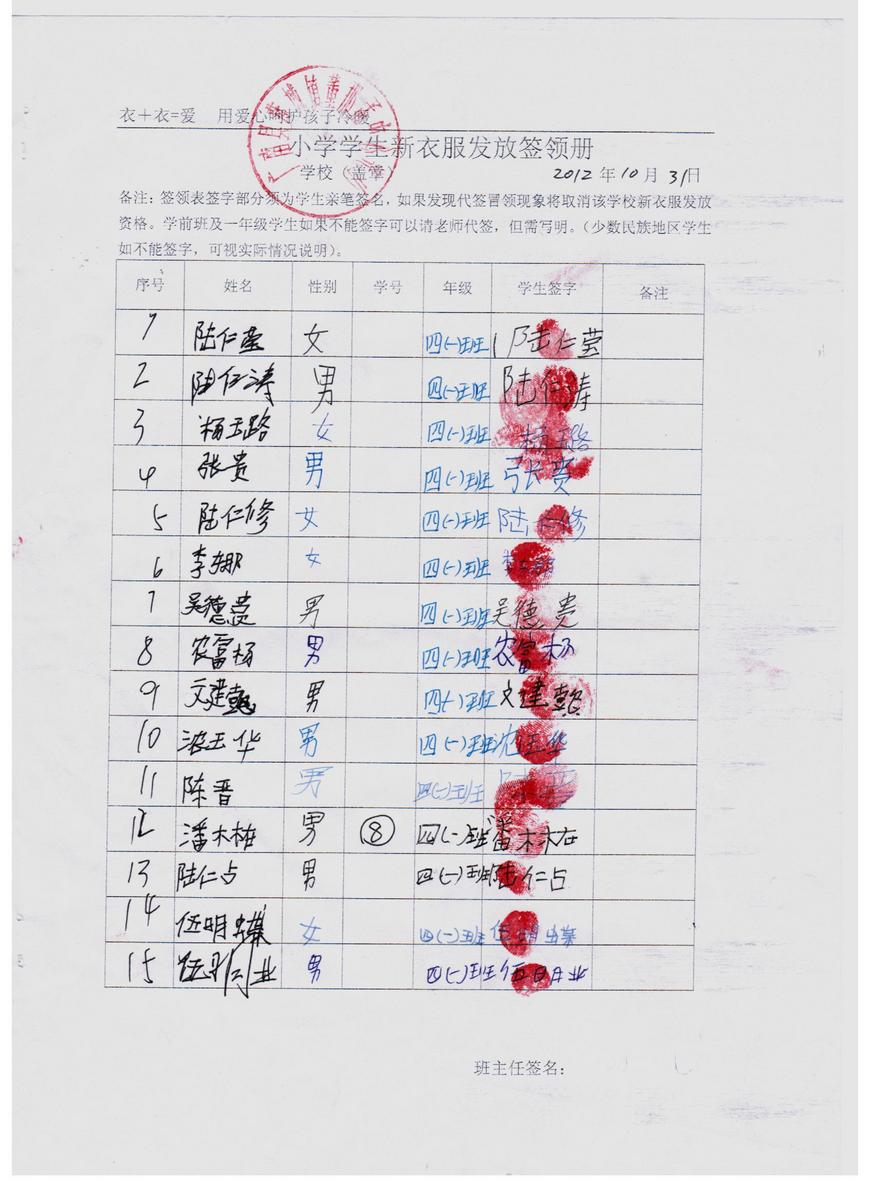 衣＋衣=爱 用爱心呵护孩子冷暖
小学学生新衣服发放签领册
学校（盖章） 2012 年 10 月 31 日
备注：签领表签字部分须为学生亲笔签名，如果发现代签冒领现象将取消该学校新衣服发放
资格。学前班及一年级学生如果不能签字可以请老师代签，但需写明。（少数民族地区学生
如不能签字，可视实际情况说明）。
序号 姓名 性别 学号 年级 学生签字 备注
1 陆仁莹 女 四(一)班 陆仁莹
2 陆仁涛 男 四(一)班 陆仁涛
3 杨玉路 女 四(一)班 杨玉路
4 张贵 男 四(一)班 张贵
5 陆仁修 女 四(一)班 陆仁修
6 李娜 女 四(一)班 李娜
7 吴德贵 男 四(一)班 吴德贵
8 农富杨 男 四(一)班 农富杨
9 文建懿 男 四(一)班 文建懿
10 玉华 男 四(一)班 沈玉华
11 陈晋 男 四(一)班
12 潘木 男 ⑧ 四(一)班 潘木
13 陆仁占 男 四(一)班 陆仁占
14 伍明蝶 女 四(一)班 伍明蝶
15 伍 业 男 四(一)班 伍 业
班主任签名：